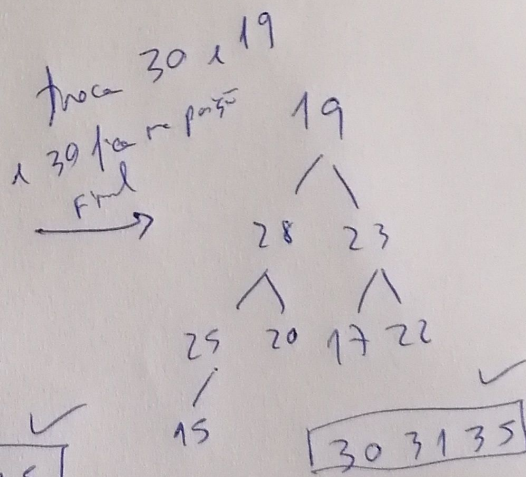 troca 30 e 19
e 30 fica na posição
final
19
28 23
25 20 17 22
15
30 31 35